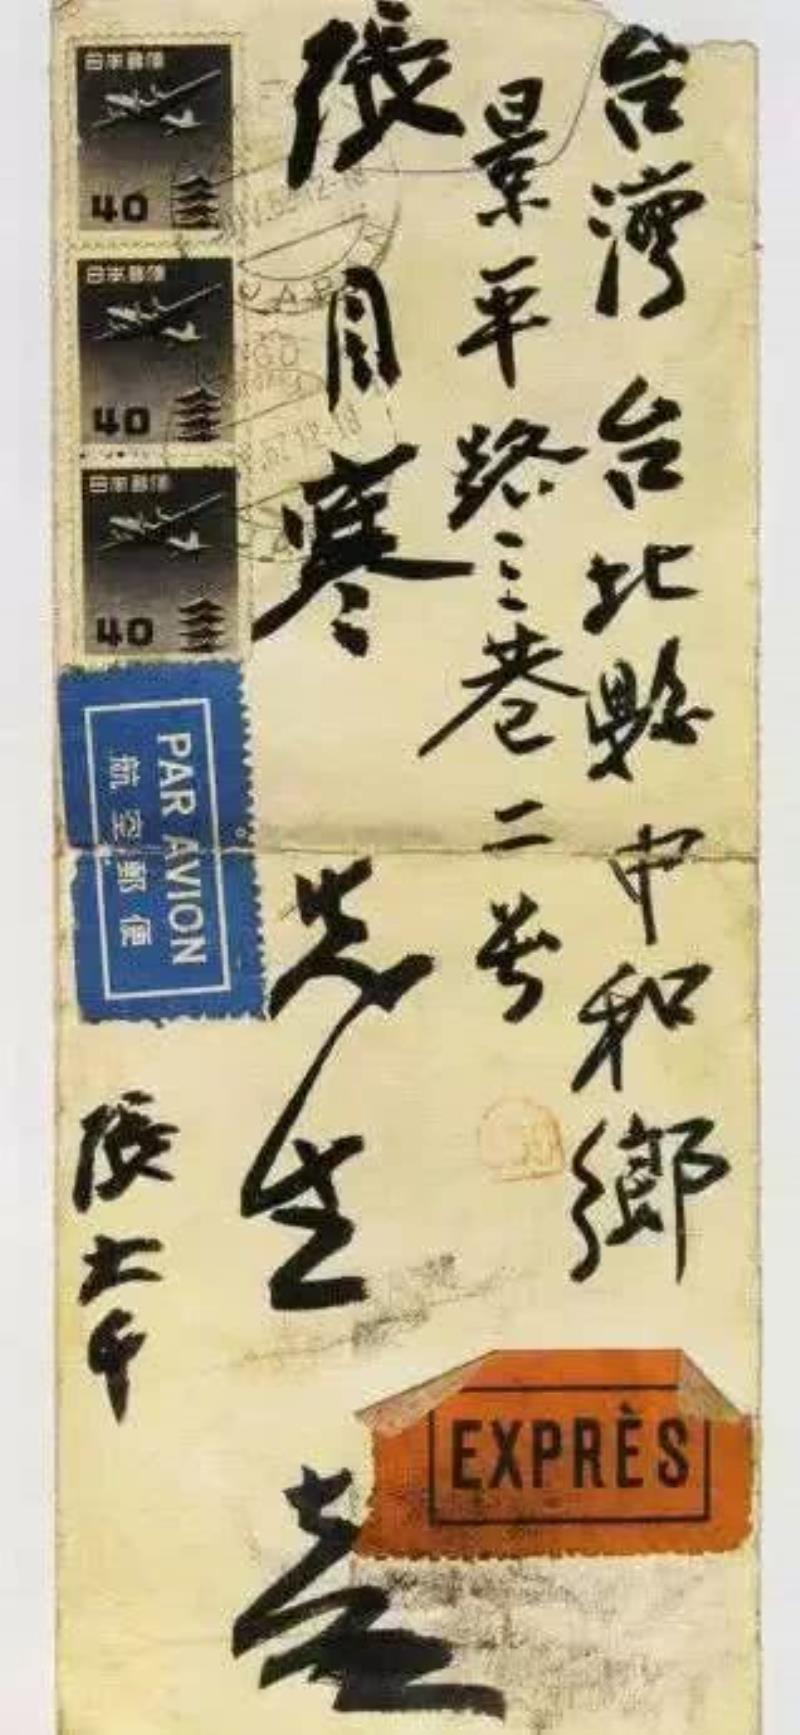 台灣台北縣中和鄉
景平路三巷二号
張目寒先生
張大千
日本郵便
40
日本郵便
40
日本郵便
40
JAPAN
PAR AVION
航空郵便
EXPRÈS